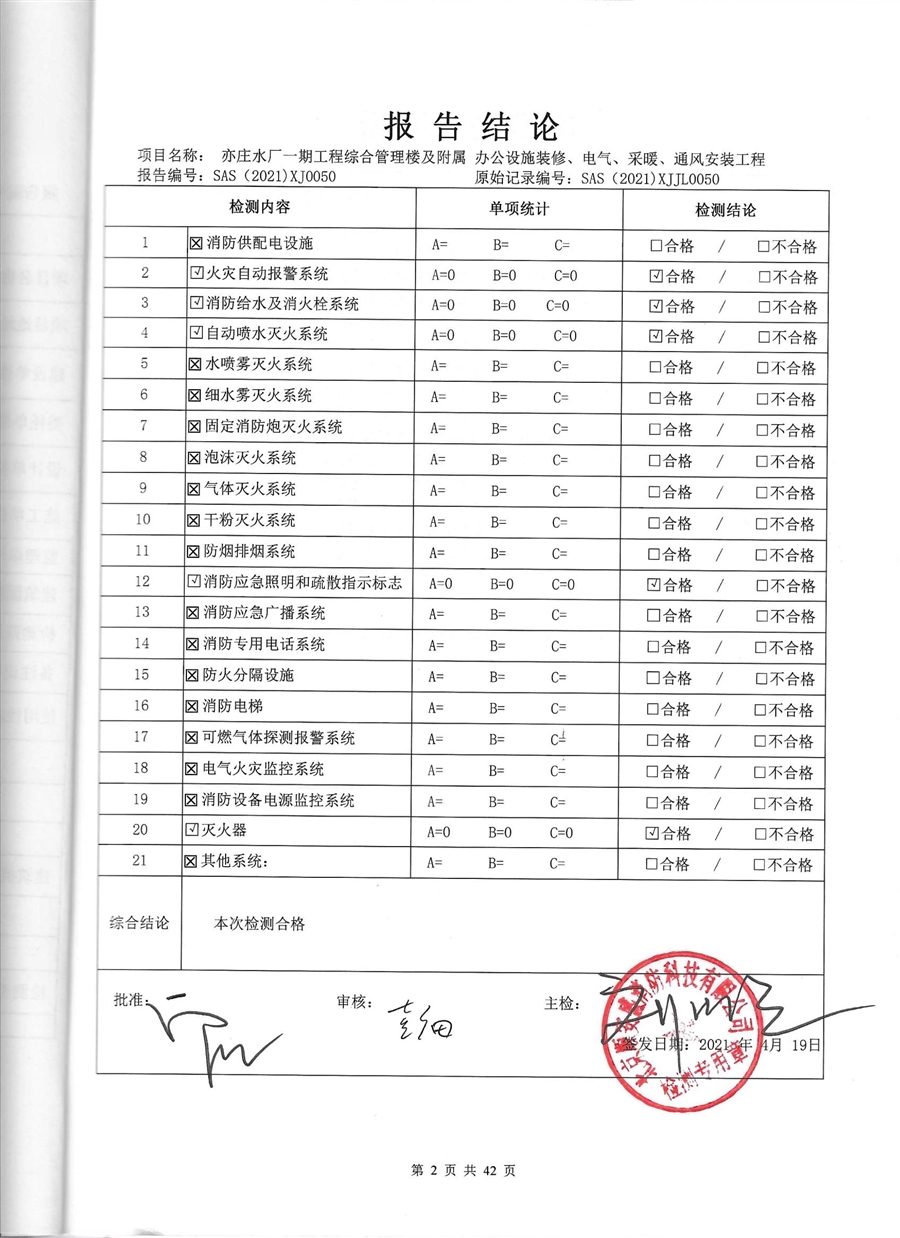 报告结论
项目名称: 亦庄水厂一期工程综合管理楼及附属 办公设施装修、电气、采暖、通风安装工程
报告编号: SAS (2021)XJ0050 原始记录编号: SAS (2021)XJJL0050
检测内容 单项统计 检测结论
1 ☒消防供配电设施 A= B= C= □合格 / □不合格
2 ☑火灾自动报警系统 A=0 B=0 C=0 ☑合格 / □不合格
3 ☑消防给水及消火栓系统 A=0 B=0 C=0 ☑合格 / □不合格
4 ☑自动喷水灭火系统 A=0 B=0 C=0 ☑合格 / □不合格
5 ☒水喷雾灭火系统 A= B= C= □合格 / □不合格
6 ☒细水雾灭火系统 A= B= C= □合格 / □不合格
7 ☒固定消防炮灭火系统 A= B= C= □合格 / □不合格
8 ☒泡沫灭火系统 A= B= C= □合格 / □不合格
9 ☒气体灭火系统 A= B= C= □合格 / □不合格
10 ☒干粉灭火系统 A= B= C= □合格 / □不合格
11 ☒防烟排烟系统 A= B= C= □合格 / □不合格
12 ☑消防应急照明和疏散指示标志 A=0 B=0 C=0 ☑合格 / □不合格
13 ☒消防应急广播系统 A= B= C= □合格 / □不合格
14 ☒消防专用电话系统 A= B= C= □合格 / □不合格
15 ☒防火分隔设施 A= B= C= □合格 / □不合格
16 ☒消防电梯 A= B= C= □合格 / □不合格
17 ☒可燃气体探测报警系统 A= B= C= □合格 / □不合格
18 ☒电气火灾监控系统 A= B= C= □合格 / □不合格
19 ☒消防设备电源监控系统 A= B= C= □合格 / □不合格
20 ☑灭火器 A=0 B=0 C=0 ☑合格 / □不合格
21 ☒其他系统: A= B= C= □合格 / □不合格
综合结论 本次检测合格
批准: 审核: 主检:
签发日期: 2021年 4月 19日
消防科技有限公司
检测专用章
第 2 页 共 42 页